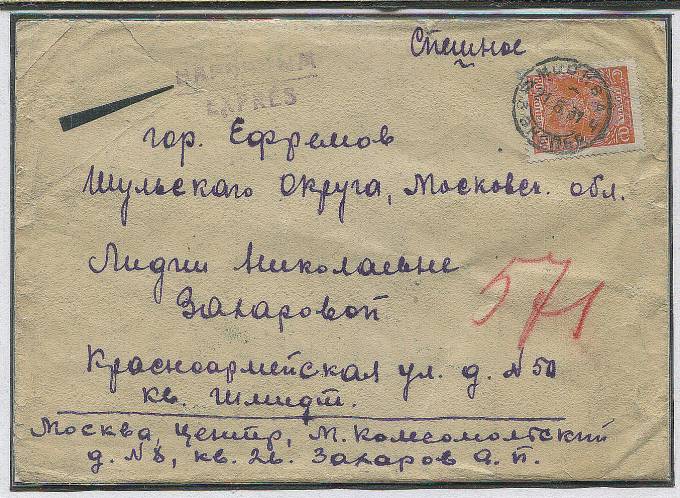 Спешное
НАРОЧНЫМ
EXPRES
гор. Ефремов
Шульского Округа, Московск. обл.
Лидии Николаевне
Захаровой
571
Красноармейская ул. д. № 50
кв. Шмидт.
Москва, центр, М. Комсомольский
д. № 8, кв. 26. Захаров А. П.